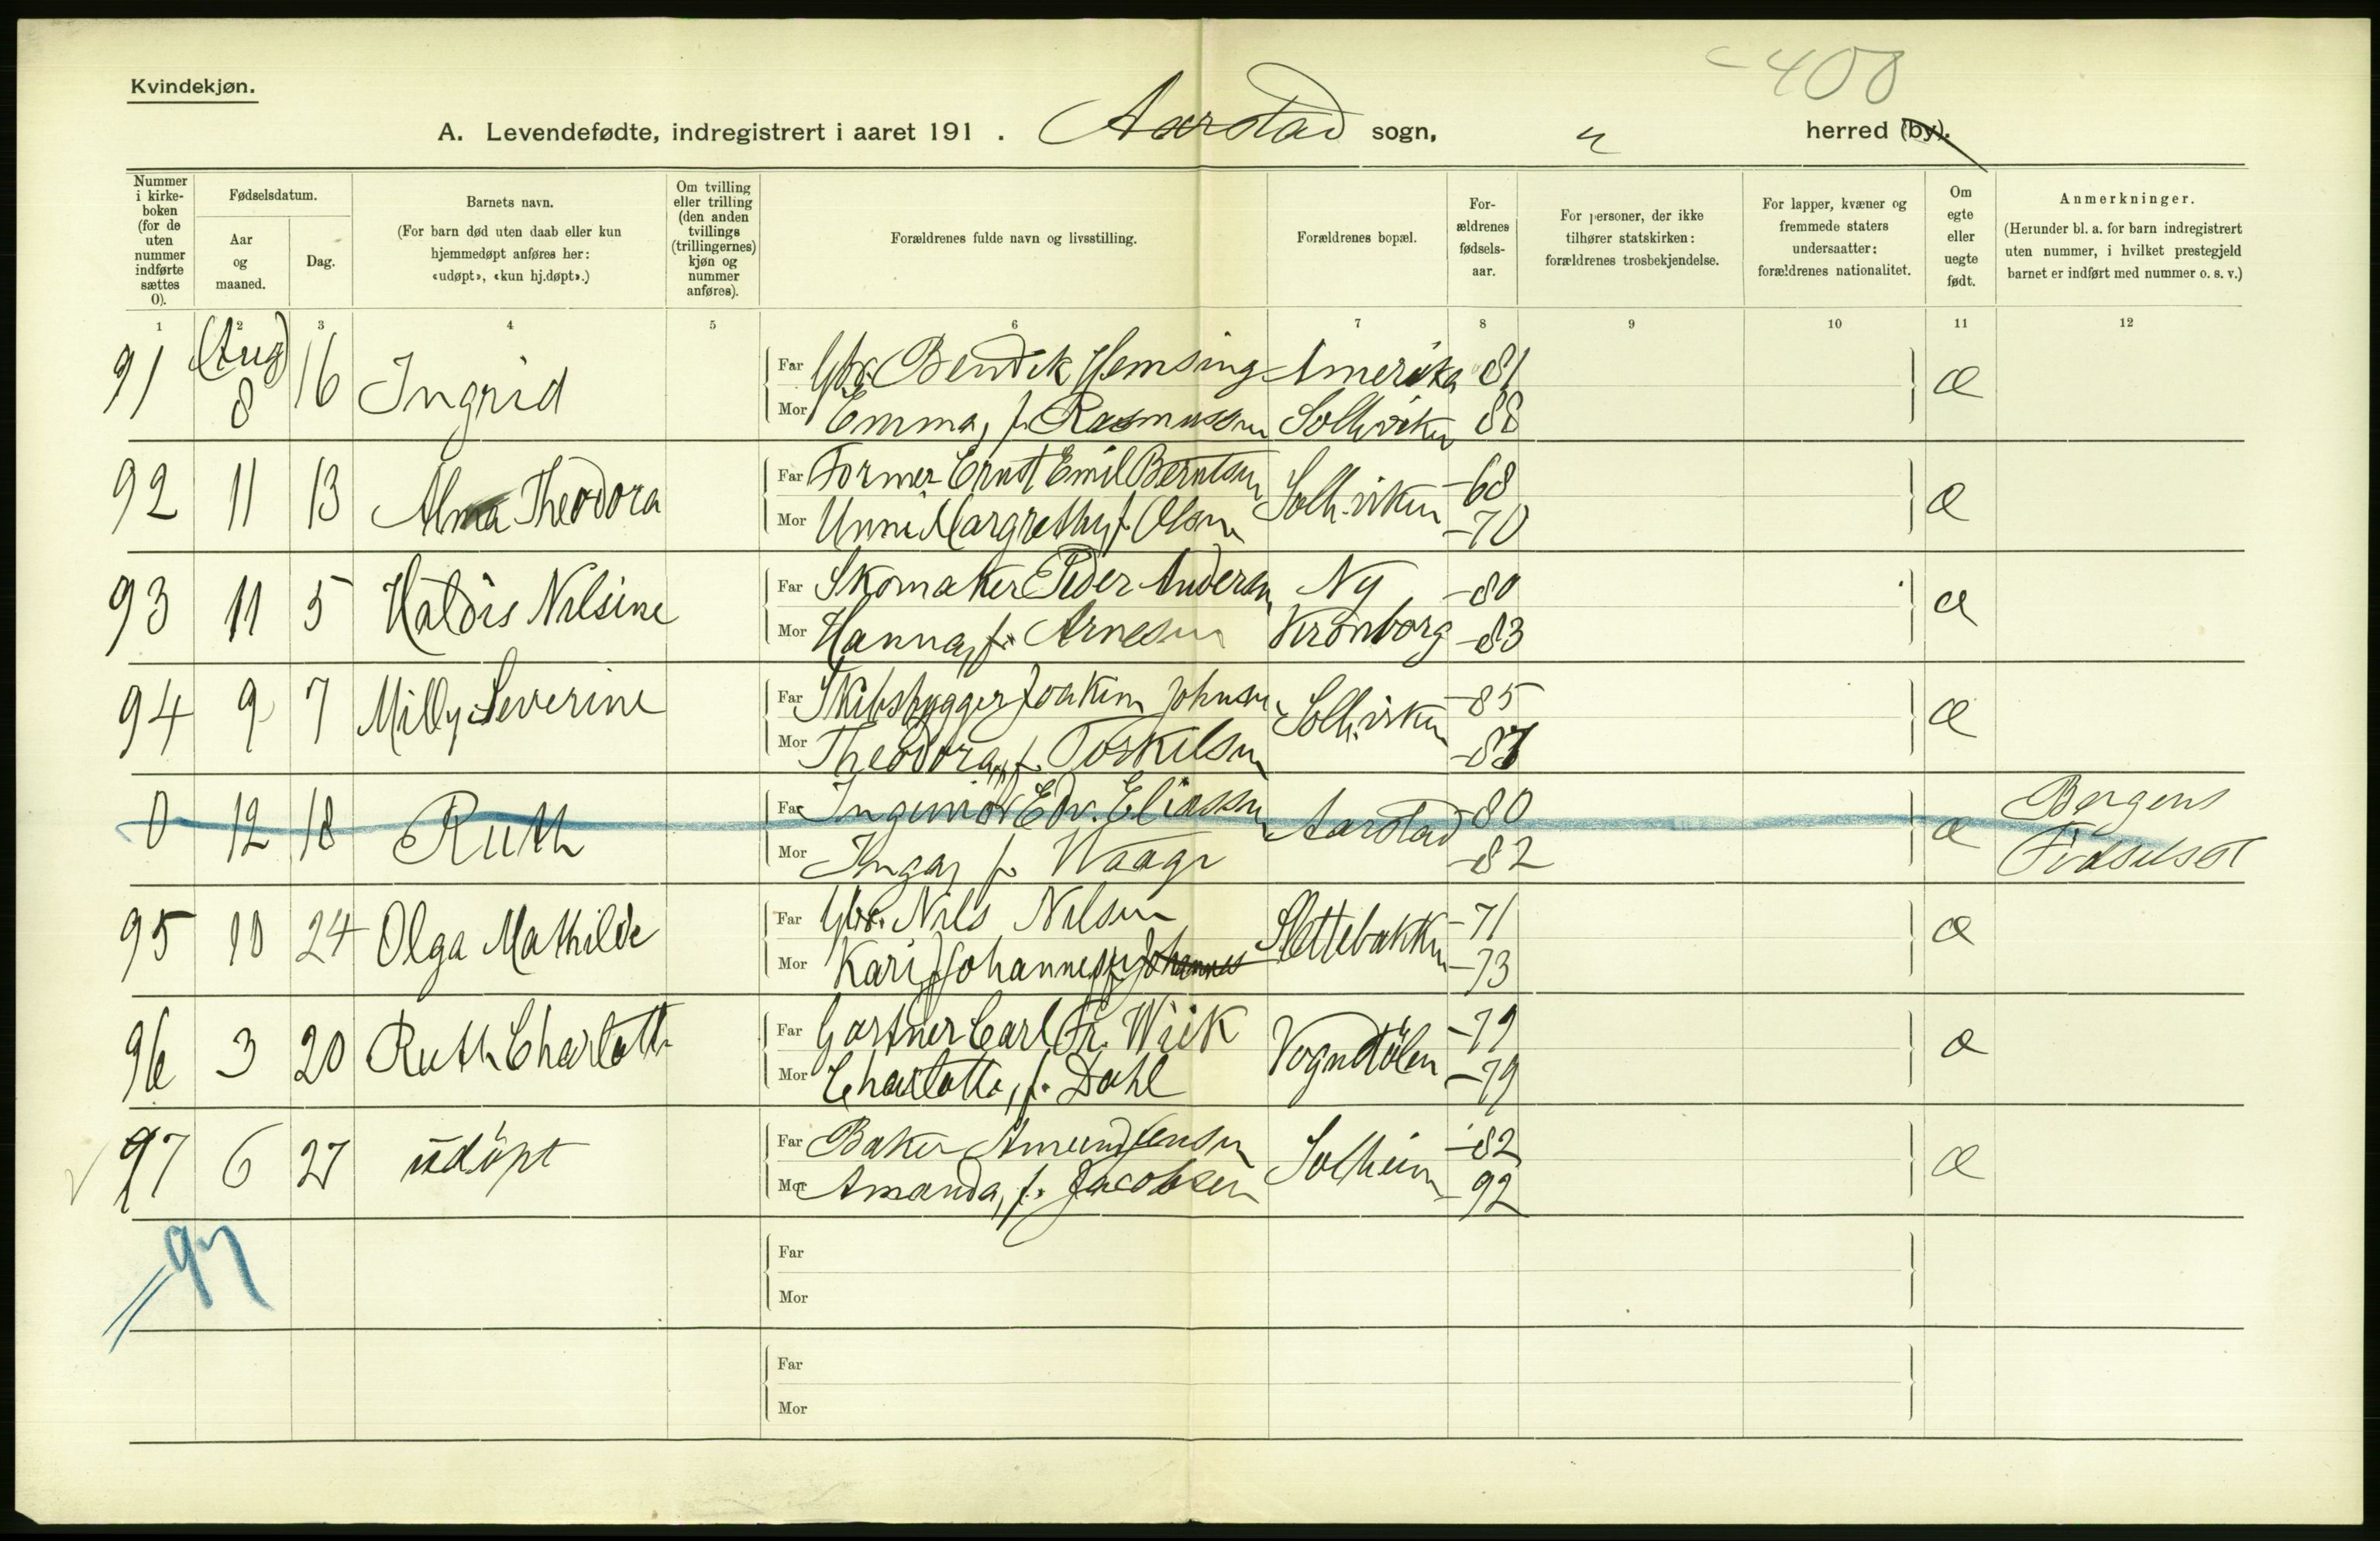 408
Kvindekjøn.
A. Levendefødte, indregistrert i aaret 191 . Aarstad sogn, " herred (by).
Nummer i kirke-boken (for de uten nummer indførte sættes 0).
Fødselsdatum.
Aar og maaned.
Dag.
Barnets navn.
(For barn død uten daab eller kun hjemmedøpt anføres her: «udøpt», «kun hj.døpt».)
Om tvilling eller trilling (den anden tvillings (trillingernes) kjøn og nummer anføres).
Forældrenes fulde navn og livsstilling.
Forældrenes bopæl.
For-ældrenes fødsels-aar.
For personer, der ikke tilhører statskirken: forældrenes trosbekjendelse.
For lapper, kvæner og fremmede staters undersaatter: forældrenes nationalitet.
Om egte eller uegte født.
Anmerkninger.
(Herunder bl. a. for barn indregistrert uten nummer, i hvilket prestegjeld barnet er indført med nummer o. s. v.)
1 2 3 4 5 6 7 8 9 10 11 12
91 (Aug) 8 16 Ingrid
Far Gbr. Bendik Hemsing Amerika 81
Mor Emma, f. Rasmussen Solh.viken 88
æ
92 11 13 Alma Theodora
Far Former Ernst Emil Berntsen Solh.viken -68
Mor Unni Margrethe, f. Olsen -70
æ
93 11 5 Haldis Nilsine
Far Skomaker Peder Andersen Ny -80
Mor Hanna, f. Arnesen Kronborg -83
æ
94 9 7 Milly Severine
Far Skibsbygger Joakim Johnsen Solh.viken -85
Mor Theodora, f. Toskilsen -87
æ
0 12 18 Ruth
Far Ingeniør Edv. Eliassen Aarstad -80
Mor Inga, f. Waage -82
æ Bergens Fødselsst
95 10 24 Olga Mathilde
Far Gbr. Nils Nilsen Slettebakken -71
Mor Kari Johannesen f. Johannes -73
æ
96 3 20 Ruth Charlotte
Far Gartner Carl Fr. Wiik Vognstölen -79
Mor Charlotte, f. Dahl -79
æ
97 6 27 udöpt
Far Baker Amund Jensen Solheim -82
Mor Amanda, f. Jacobsen -92
æ
97
Far
Mor
Far
Mor